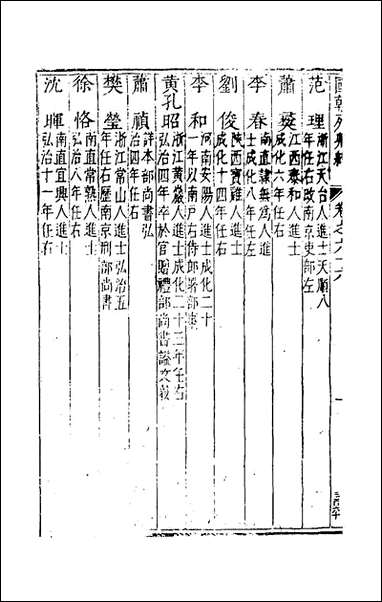 國朝列卿紀 卷之六十六
范理
浙江天台人進士天順八
年任右改南京吏部左
蕭奠
江西泰和人進士
成化六年任右
李春
南直隸吳人進
士成化八年任左
劉俊
陝西寶雞人進士
成化十四年任右
李和
河南安陽人進士成化二十
一年以南戶右侍郎署部事
黃孔昭
浙江黃巖人進士成化二十三年任右
弘治四年卒於官贈禮部尚書謚文毅
蕭禎
詳本部尚書弘
治四年任右
樊瑩
浙江常山人進士弘治五
年任右歷南京刑部尚書
徐恪
南直常熟人進士
弘治八年任右
沈暉
南直宜興人進士
弘治十一年任右